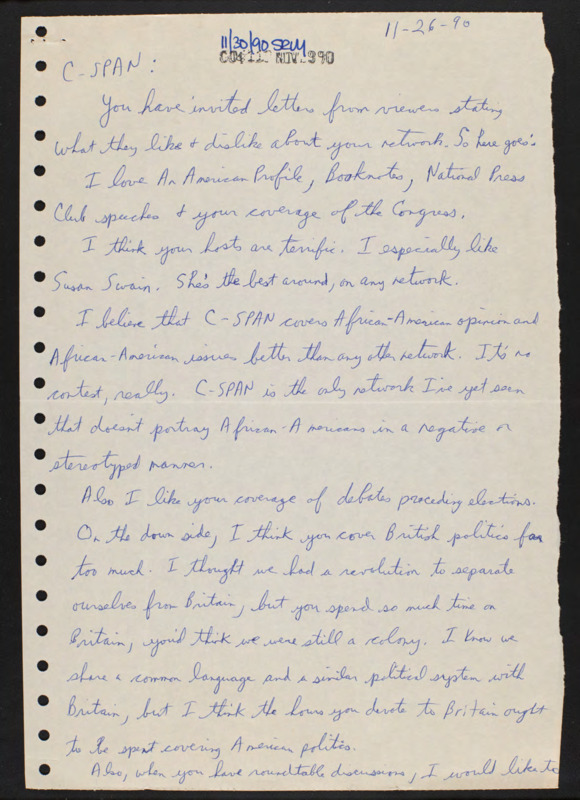 11-26-90
11/30/90 SRW
NOV. 990
C-SPAN:
You have invited letters from viewers stating
what they like & dislike about your network. So here goes:
I love An American Profile, Booknotes, National Press
Club speeches & your coverage of the Congress.
I think your hosts are terrific. I especially like
Susan Swain. She's the best around, on any network.
I believe that C-SPAN covers African-American opinion and
African-American issues better than any other network. It's no
contest, really. C-SPAN is the only network I've yet seen
that doesn't portray African-Americans in a negative or
stereotyped manner.
Also I like your coverage of debates preceding elections.
On the down side, I think you cover British politics far
too much. I thought we had a revolution to separate
ourselves from Britain, but you spend so much time on
Britain, you'd think we were still a colony. I know we
share a common language and a similar political system with
Britain, but I think the hours you devote to Britain ought
to be spent covering American politics.
Also, when you have roundtable discussions, I would like to